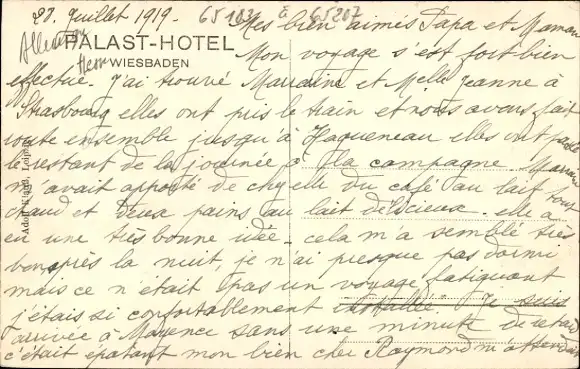 28. Juillet 1919. 65103 à 65207
Mes bien aimés Papa et Maman
PALAST-HOTEL
WIESBADEN
Mon voyage s'est fort bien
effectué. J'ai trouvé Marraine et Melle Jeanne à
Strasbourg elles ont pris le train et nous avons fait
route ensemble jusqu'à Hagueneau elles ont passé
le restant de la journée à la campagne. Marraine
m'avait apporté de chez elle du café au lait tout
chaud et deux pains au lait délicieux. elle a
eu une très bonne idée. cela m'a semblé très
bon après la nuit, je n'ai presque pas dormi
mais ce n'était pas un voyage fatiguant
j'étais si confortablement installée. Je suis
arrivée à Mayence sans une minute de retard
c'était épatant mon bien cher Raymond m'attendait
Adolf Klauss Leipzig